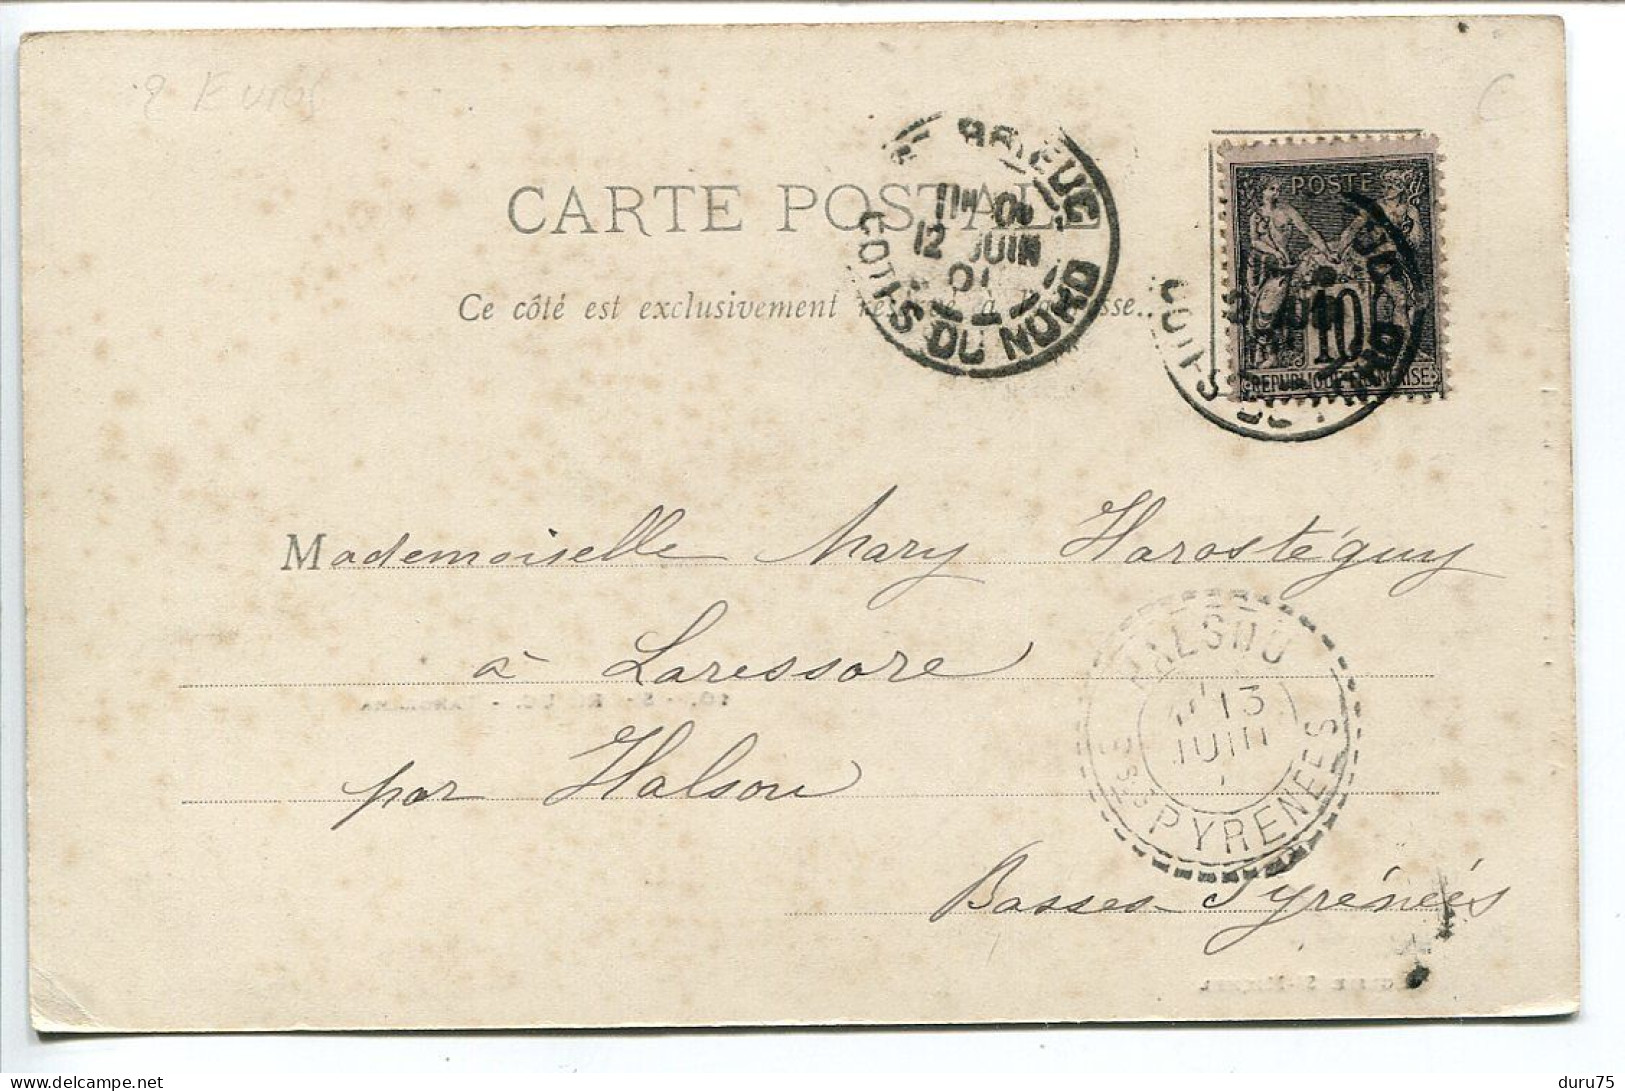 2 Euros
C
CARTE POSTALE
Ce côté est exclusivement réservé à l'adresse..
BRIEUC
12 JUIN
01
COTES DU NORD
POSTE
10
REPUBLIQUE FRANÇAISE
Mademoiselle Mary Harostéguy
à Laressore
par Halsou
Basses-Pyrénées
HALSOU
13
JUIN
BSSES PYRENEES
duru75